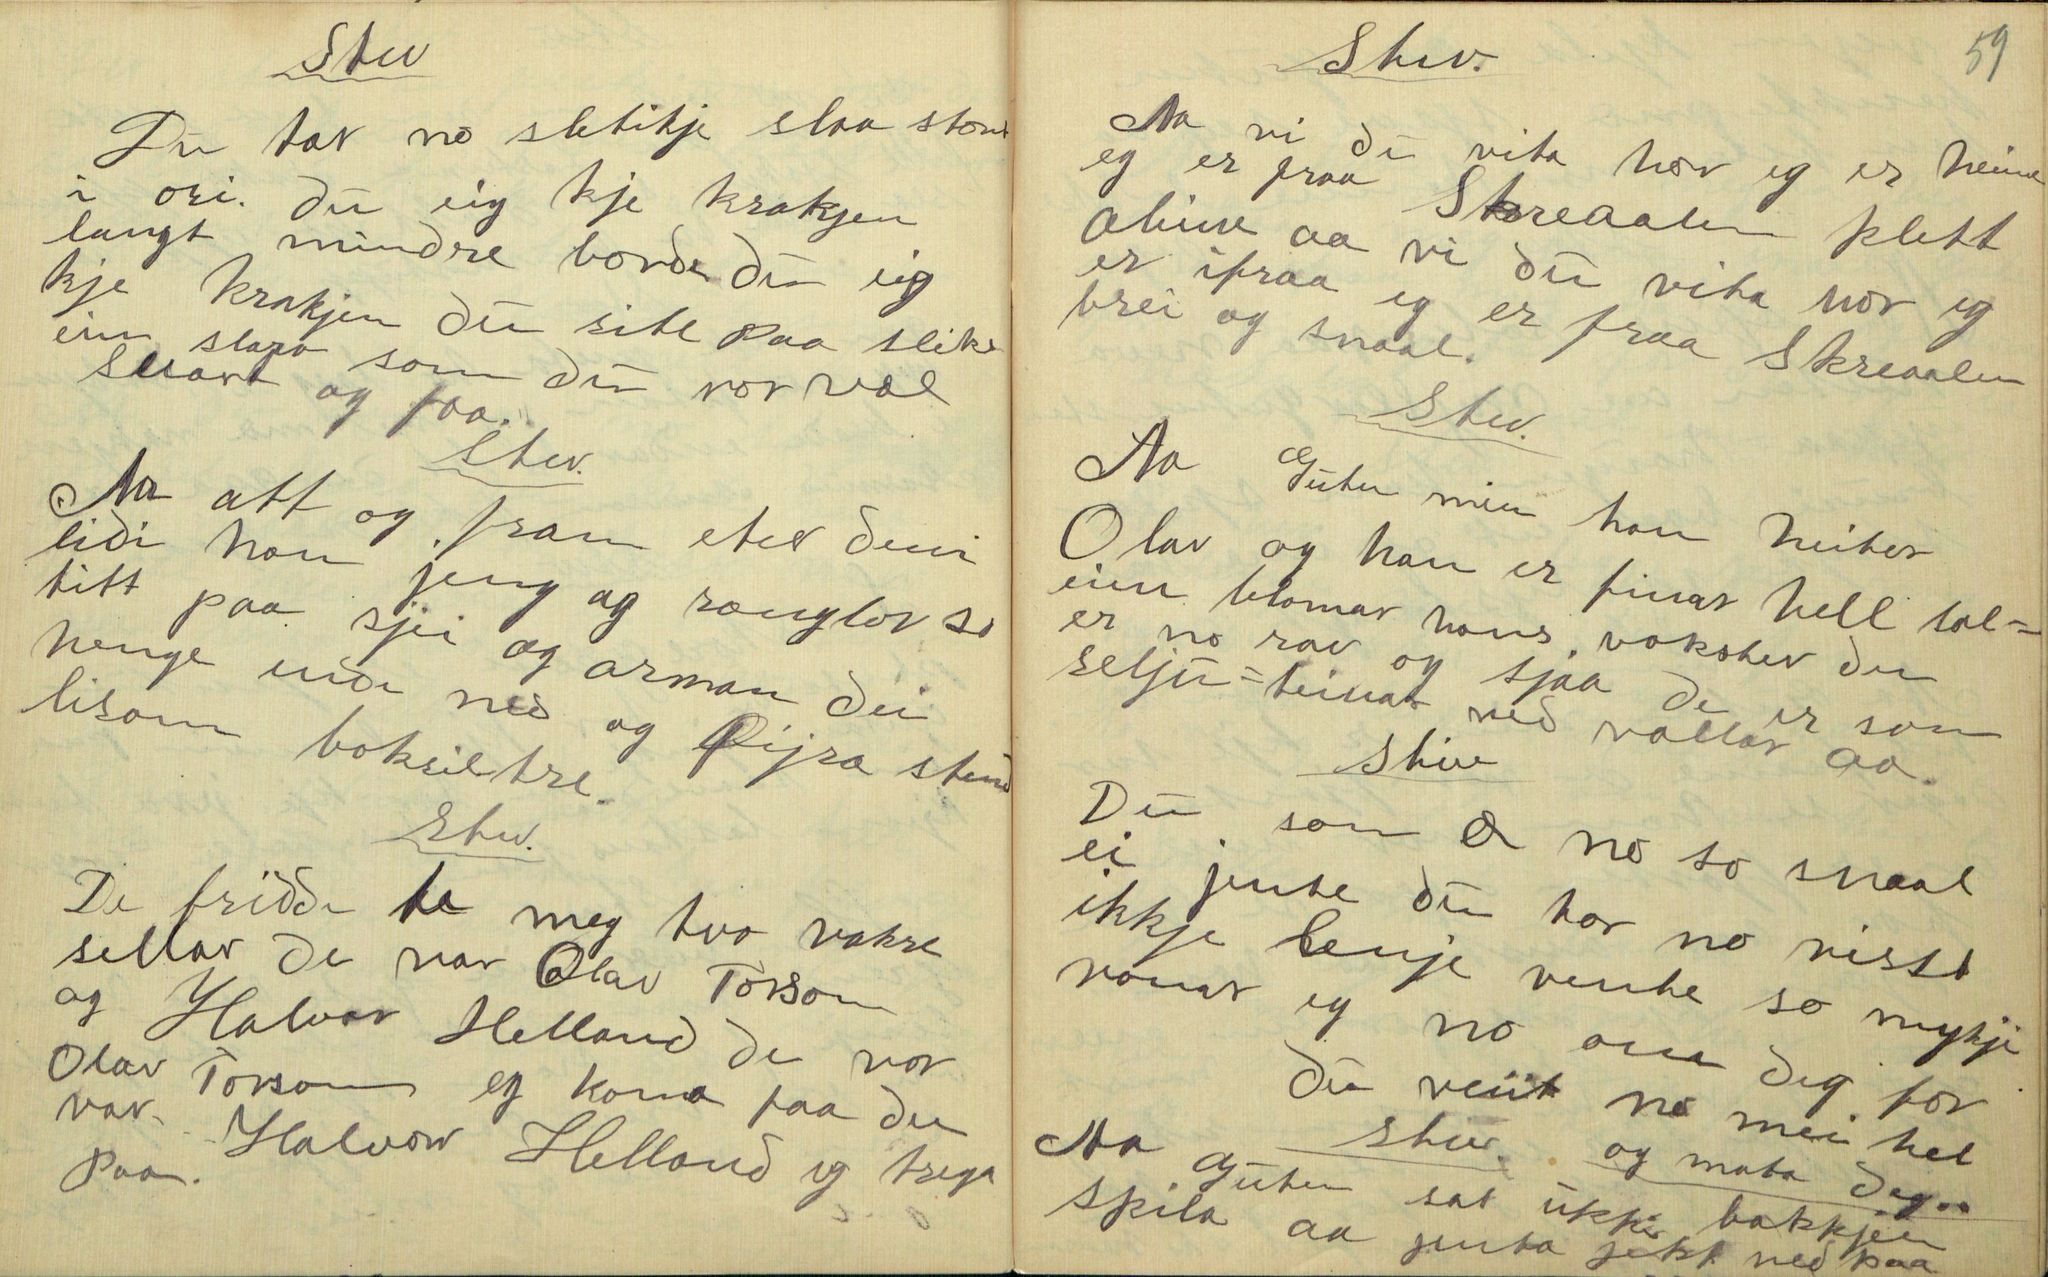 Stev
Du tar no sletikje slaa stour
i ori. du eig kje krakjen
langt mindre borde du eig
kje krakjen du sitt paa slike
ein slarv som du vor væl
snart og faa.
Stev.
Aa att og fram etev deni
lidi han jeng og ranglar so
titt paa sjei og arman dei
henge nide ned og fijra stend
lisom bokseltre.
Stev.
De fridde te meg tvo vakre
sellar de var Olav Torson
og Halvor Helland de var
Olav Torson eg kom faa den
var Halvor Helland eg trega
paa.
59
Stev.
Aa vi du vita hor eg er heime
eg er fraa Skreaalen plett
aleine aa vi du vita hor eg
er ifraa eg er fraa Skreaalen
brei og snaal.
Stev.
Aa Guten min han heiter
Olav og han er finar hell sol=
ein blomar hans vokster den
er no rav og sjaa de er som
selju=teinar ved vallar aa.
Stev
Du som er no so snaal
ei jente du tar no visst
ikkje lenje vente so mykji
vonar eg no om deg for
du veit no mei hel
og mata deg..
Stev.
Aa Guten sat ukki bakkjen
spila aa jenta jekk ned paa